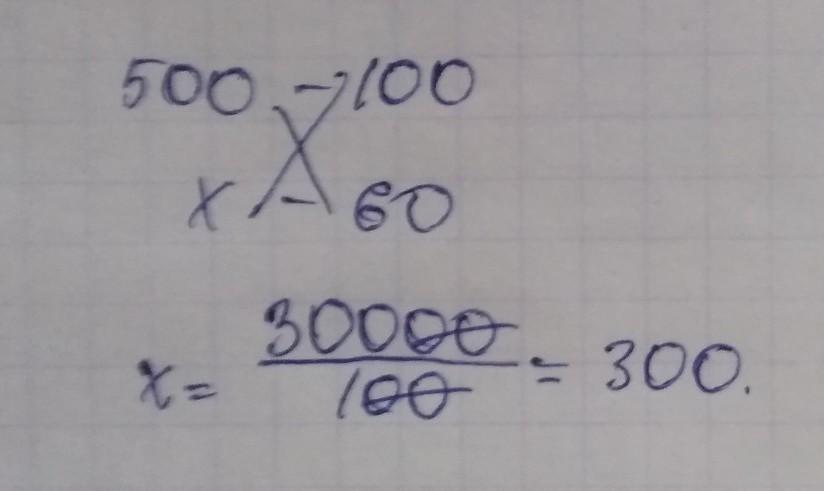 500 - 100
x - 60
x = 30000/100 = 300.